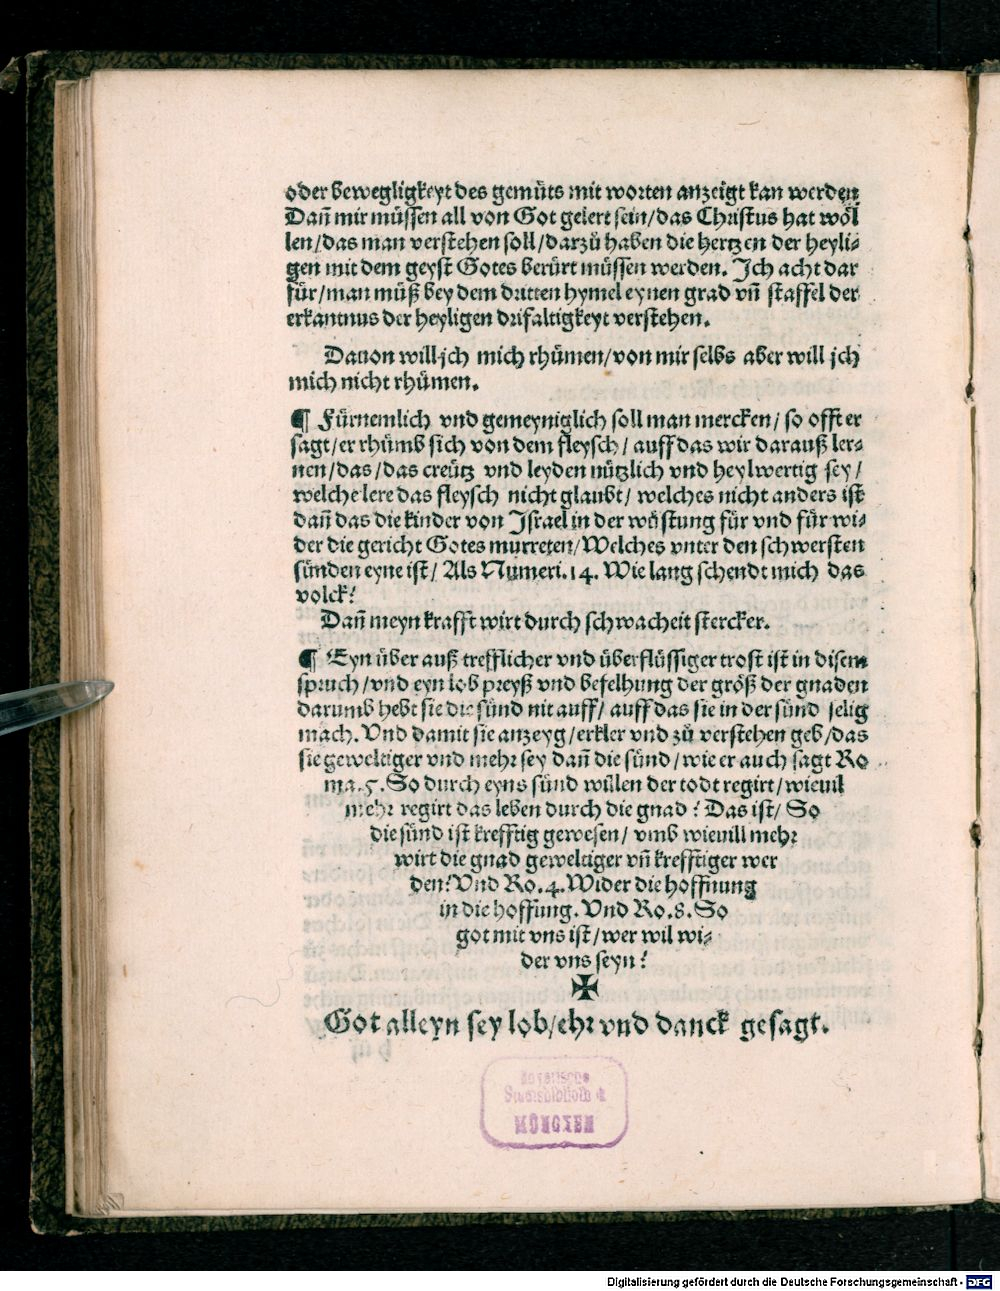 oder bewegligkeyt des gemüts mit worten anzeigt kan werden
Dañ mir müssen all von Got gelert sein/das Christus hat wöl
len/das man verstehen soll/darzů haben die hertzen der heyli-
gen mit dem geyst Gotes berürt müssen werden. Jch acht dar
für/man müß bey dem dritten hymel eynen grad vñ staffel der
erkantnus der heyligen drifaltigkeyt verstehen.
Dauon will jch mich rhümen/von mir selbs aber will jch
mich nicht rhümen.
¶ Fürnemlich vnd gemeyniglich soll man mercken/ so offt er
sagt/er rhümb sich von dem fleysch/ auff das wir darauß ler-
nen/das/das creütz vnd leyden nützlich vnd heylwertig sey/
welche lere das fleysch nicht glaubt/ welches nicht anders ist
dañ das die kinder von Jsrael in der wůstung für vnd für wi-
der die gericht Gotes murreten/Welches vnter den schwersten
sünden eyne ist/ Als Numeri.14. Wie lang schendt mich das
volck?
Dañ meyn krafft wirt durch schwacheit stercker.
¶ Eyn über auß trefflicher vnd überflüssiger trost ist in disem
spruch/vnd eyn lob preyß vnd befelhung der größ der gnaden
darumb hebt sie die sünd nit auff/ auff das sie in der sünd selig
mach. Vnd damit sie anzeyg/erkler vnd zů verstehen geb/das
sie geweltiger vnd mehr sey dañ die sünd/wie er auch sagt Ro
ma.5. So durch eyns sünd willen der todt regirt/wieuil
mehr regirt das leben durch die gnad? Das ist/ So
die sünd ist krefftig gewesen/ vmb wieuill mehr
wirt die gnad geweltiger vñ krefftiger wer
den? Vnd Ro.4. Wider die hoffnung
in die hoffung. Vnd Ro.8. So
got mit vns ist/wer wil wi-
der vns seyn?
✠
Got alleyn sey lob/ehr vnd danck gesagt.
Bayerische
Staatsbibliothek
MÜNCHEN
Digitalisierung gefördert durch die Deutsche Forschungsgemeinschaft - DFG